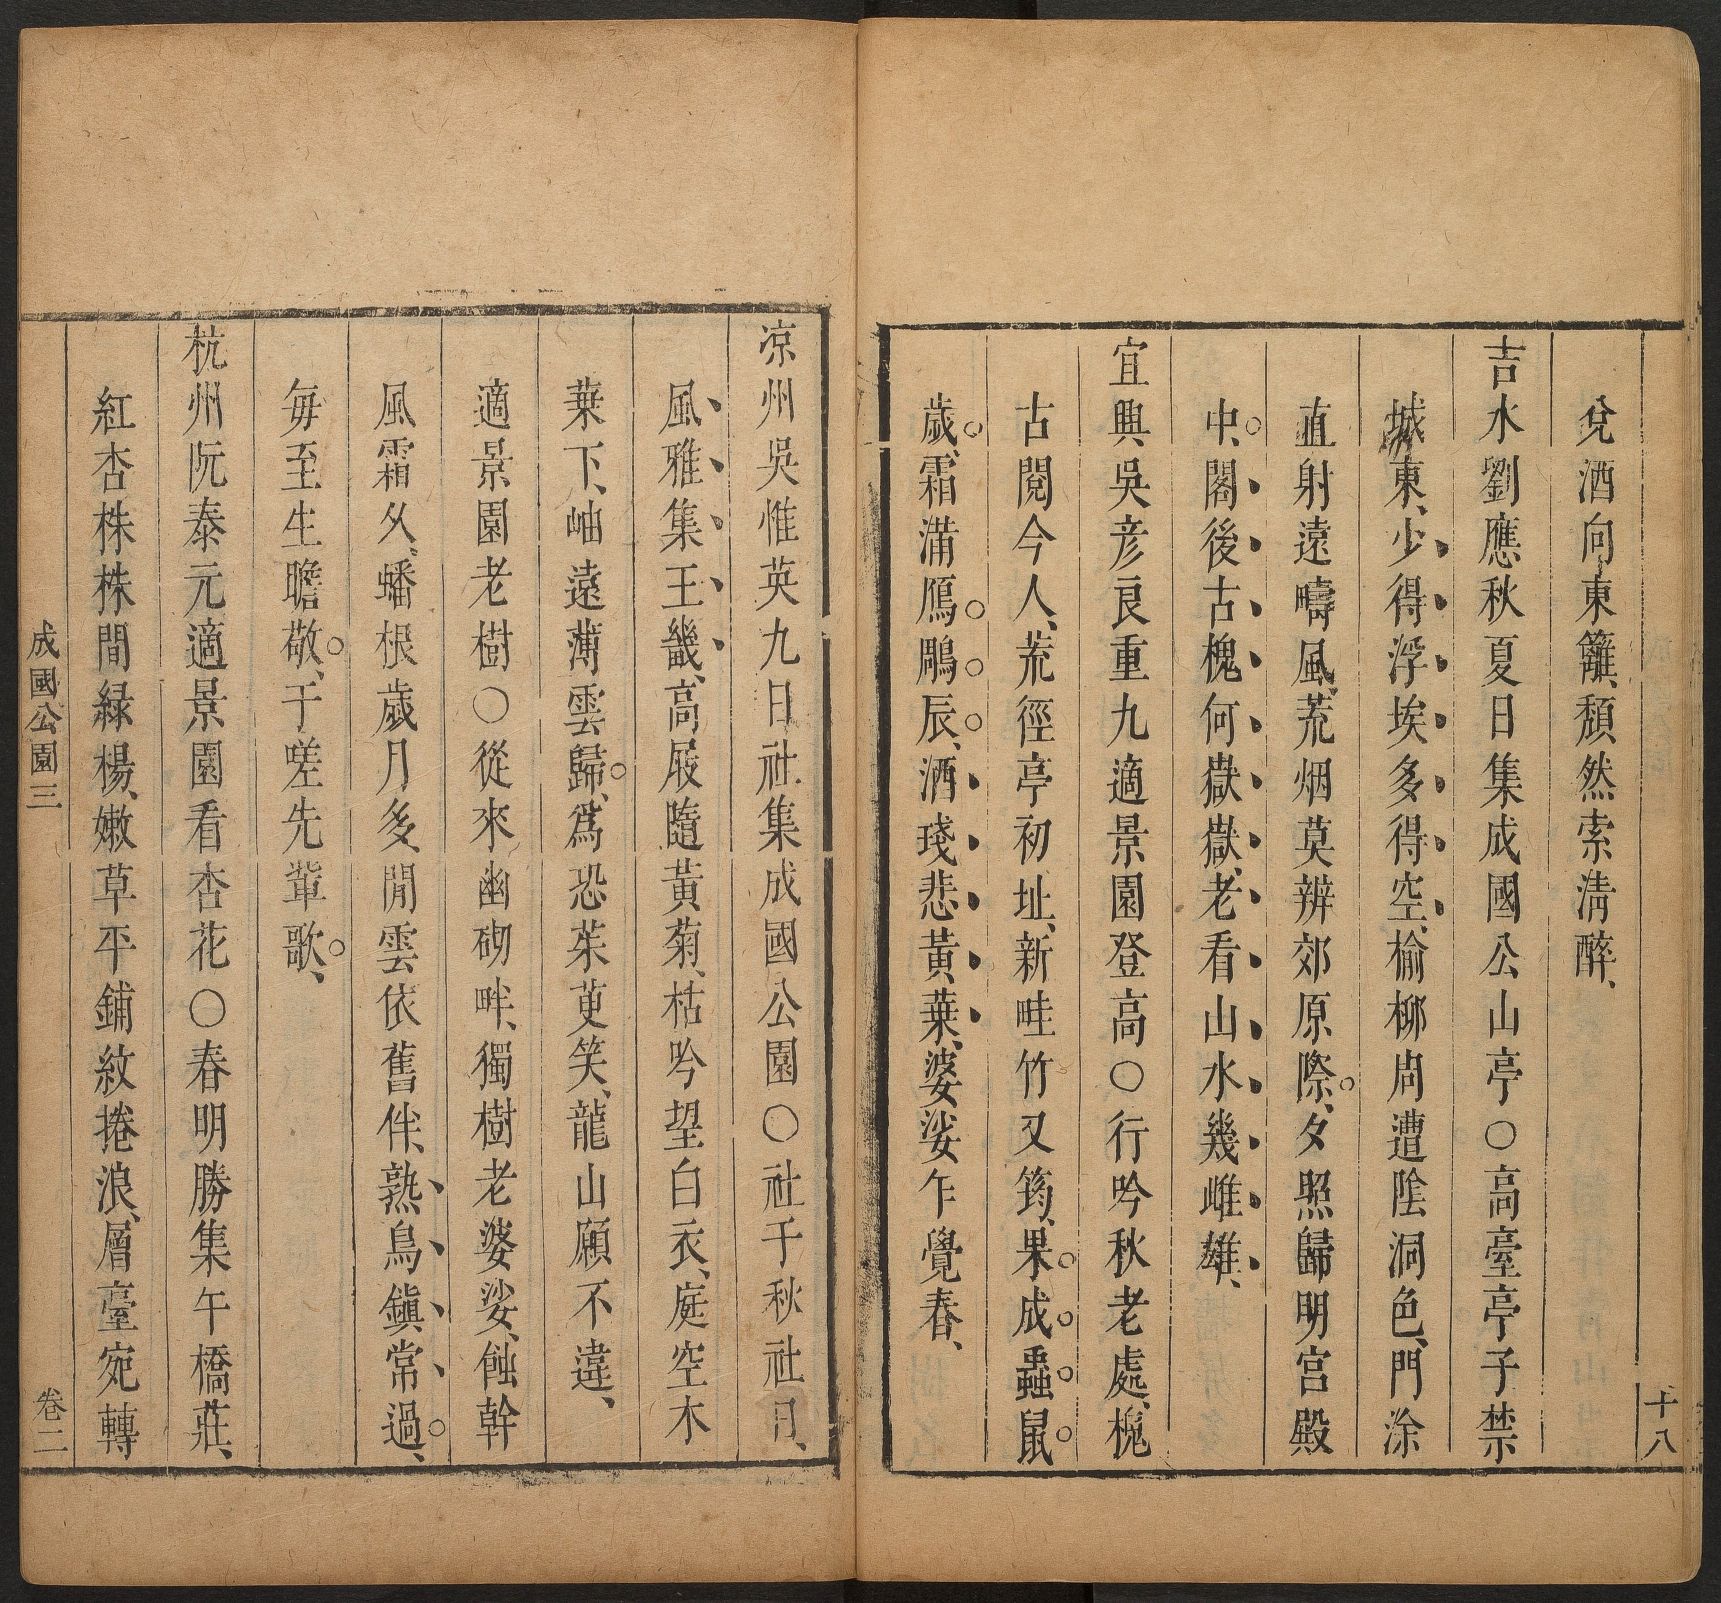 十八
兌酒向東籬、頹然索淸醉、
吉水劉應秋夏日集成國公山亭○高臺亭子禁
城東、少得浮埃多得空、榆柳周遭陰洞色、門涂
直射遠疇風、荒烟莫辨郊原際、夕照歸明宮殿
中、閣後古槐何嶽嶽、老看山水幾雌雄、
宜興吳彥良重九適景園登高○行吟秋老處、槐
古閱今人、荒徑亭初址、新畦竹又筠、果成蟲鼠
歲、霜滿鴈鵰辰、酒琖悲黃葉、婆娑乍覺春、
凉州吳惟英九日社集成國公園○社于秋社日、
風雅集王畿、高屐隨黃菊、枯吟望白衣、庭空木
葉下、岫遠薄雲歸、爲恐茱萸笑、龍山願不違、
適景園老樹○從來幽砌畔、獨樹老婆娑、蝕幹
風霜久、蟠根歲月多、閒雲依舊伴、熟鳥鎮常過、
每至生瞻敬、于嗟先輩歌、
杭州阮泰元適景園看杏花○春明勝集午橋莊、
紅杏株株間緑楊、嫩草平鋪紋捲浪、層臺宛轉
成國公園三
卷二